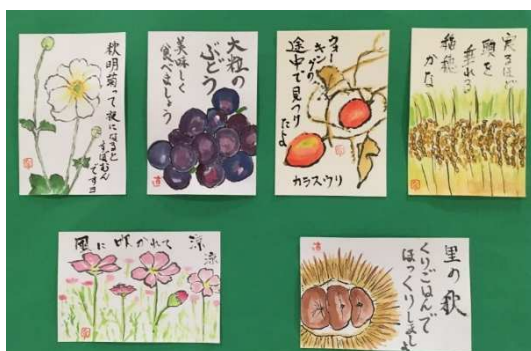 秋明菊って夜になると
すぼむん
ですョ
大粒の
ぶどう
美味しく
食べましょう
ウォー
キングの
途中で見つけ
たよ
カラスウリ
実るほど
頭を
垂れる
稲穂
かな
風に吹かれて
里の秋
くりごはんで
ほっくりしましょ